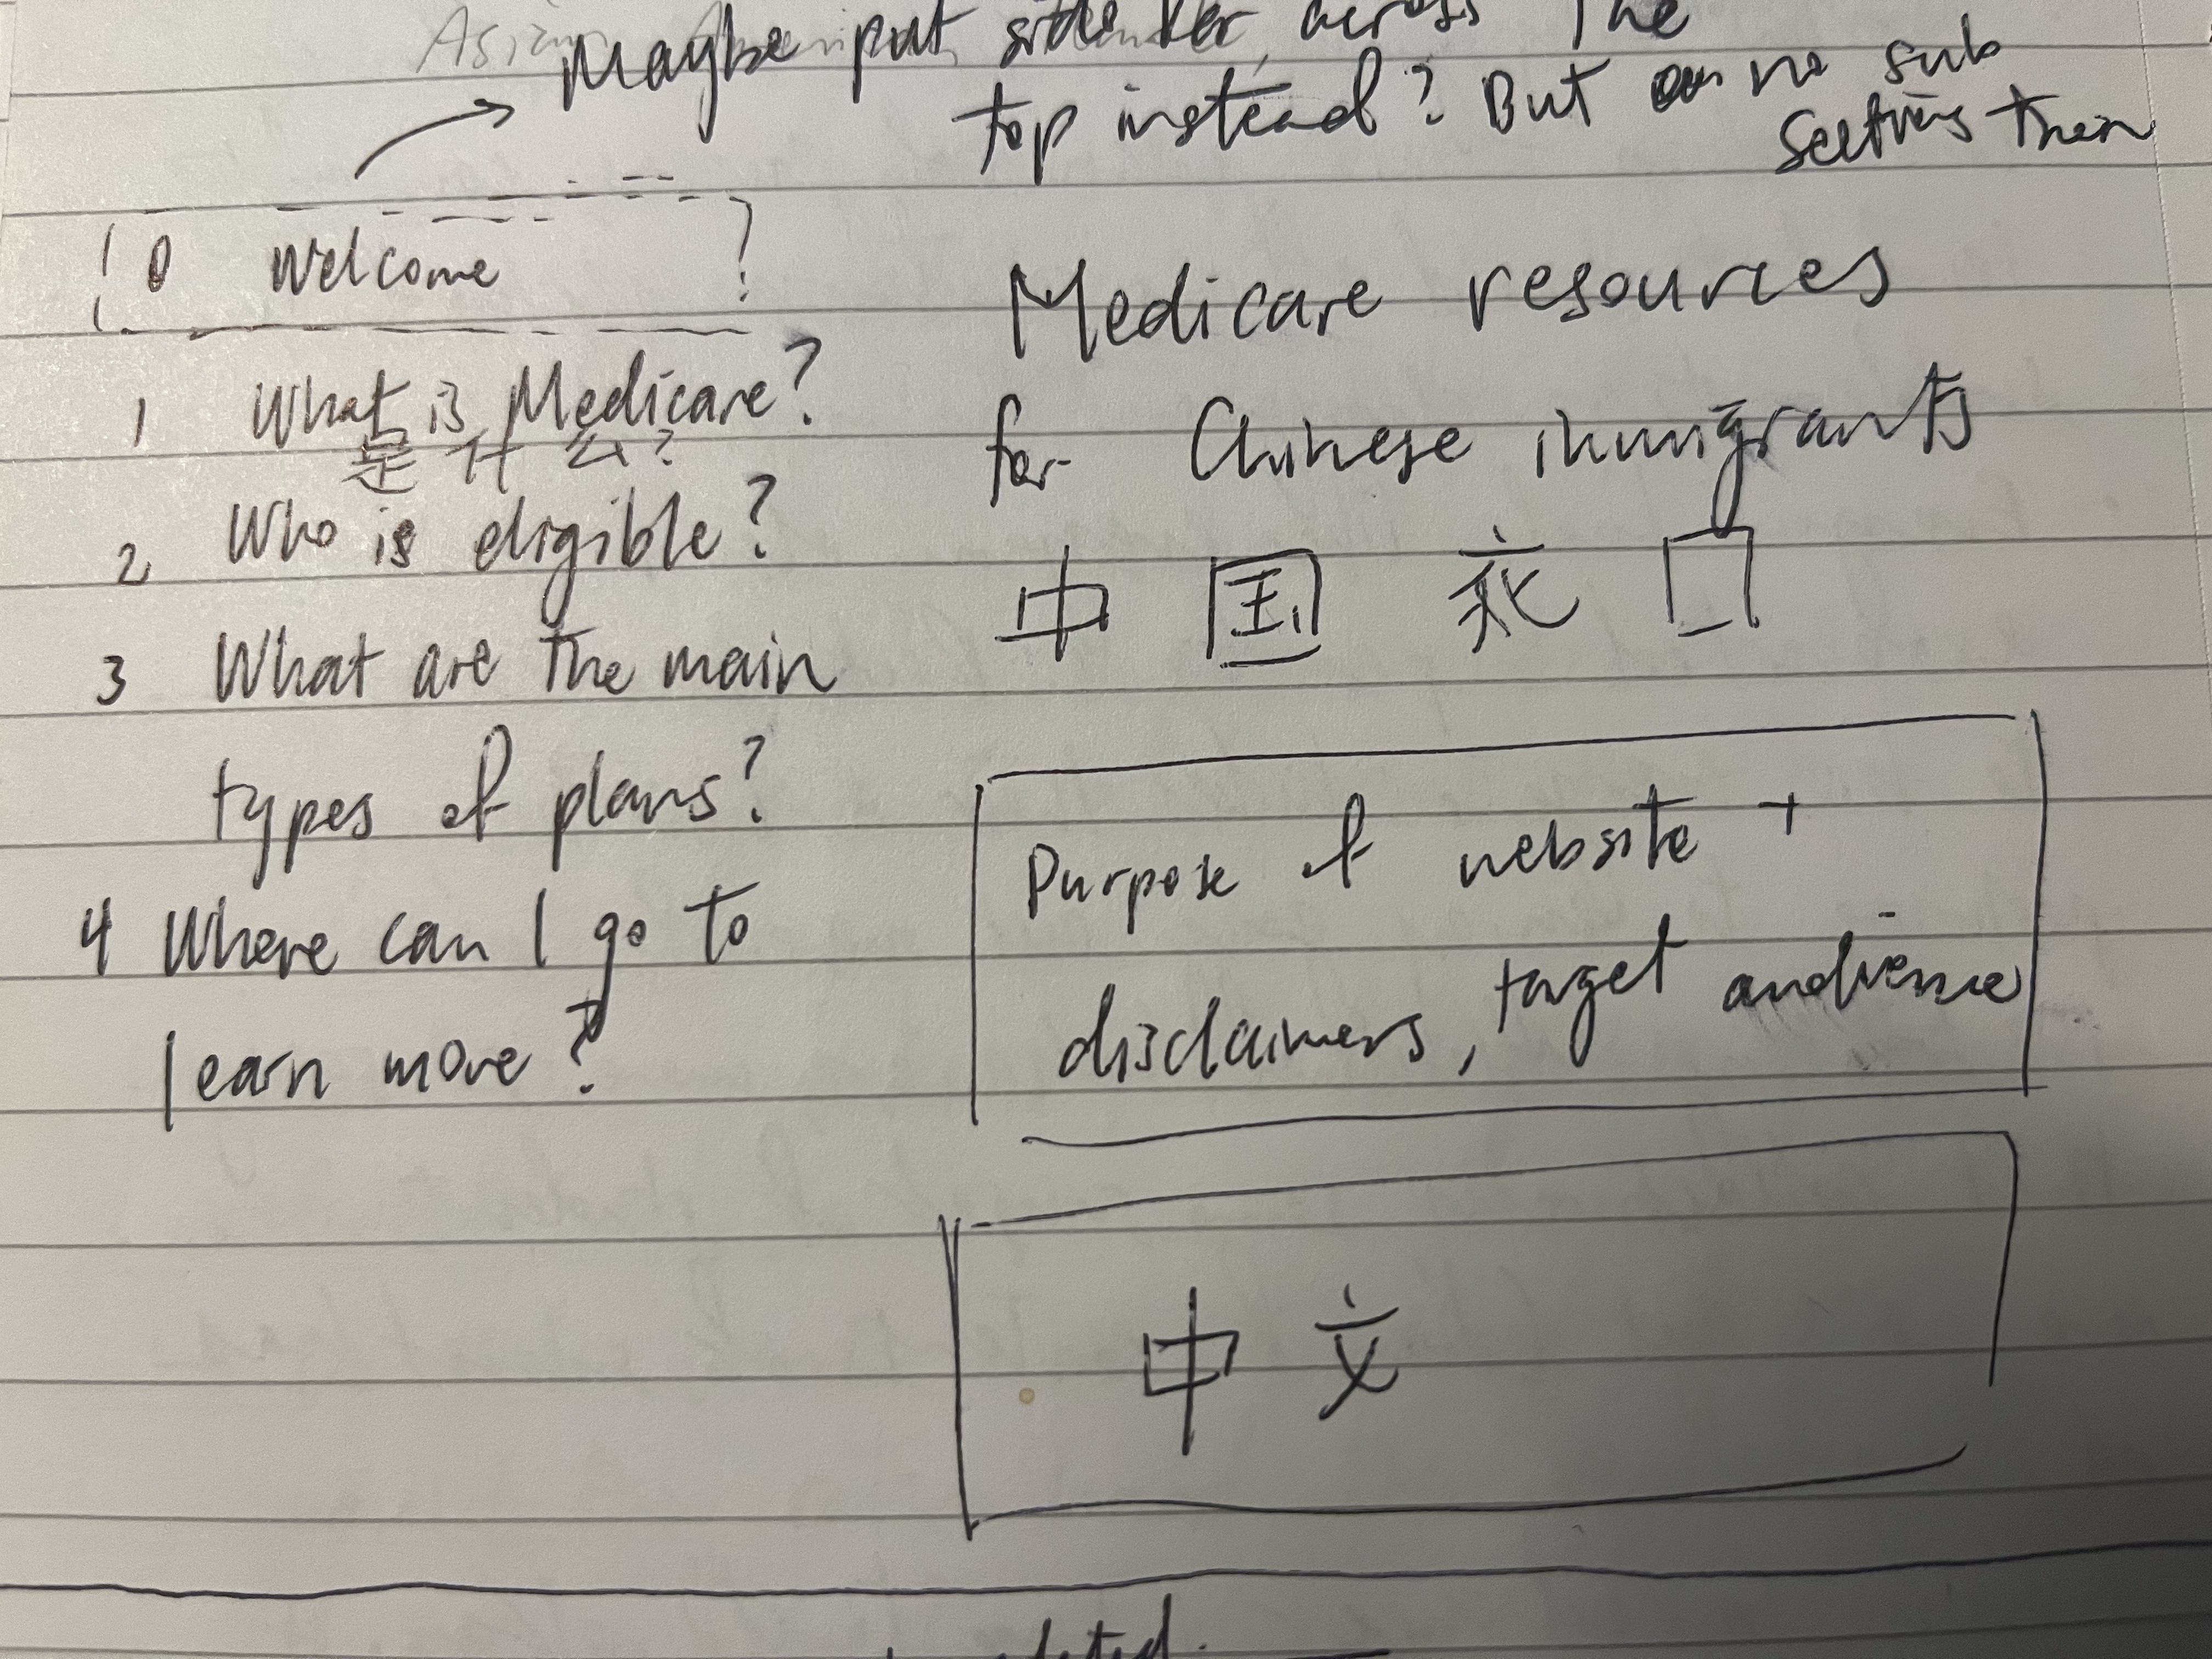 Maybe put sidebar across the
top instead? But no sub
sections then
0 Welcome
1 What is Medicare?
是什么?
2 Who is eligible?
3 What are the main
types of plans?
4 Where can I go to
learn more?
Medicare resources
for Chinese immigrants
中国
Purpose of website +
disclaimers, target audience
中文